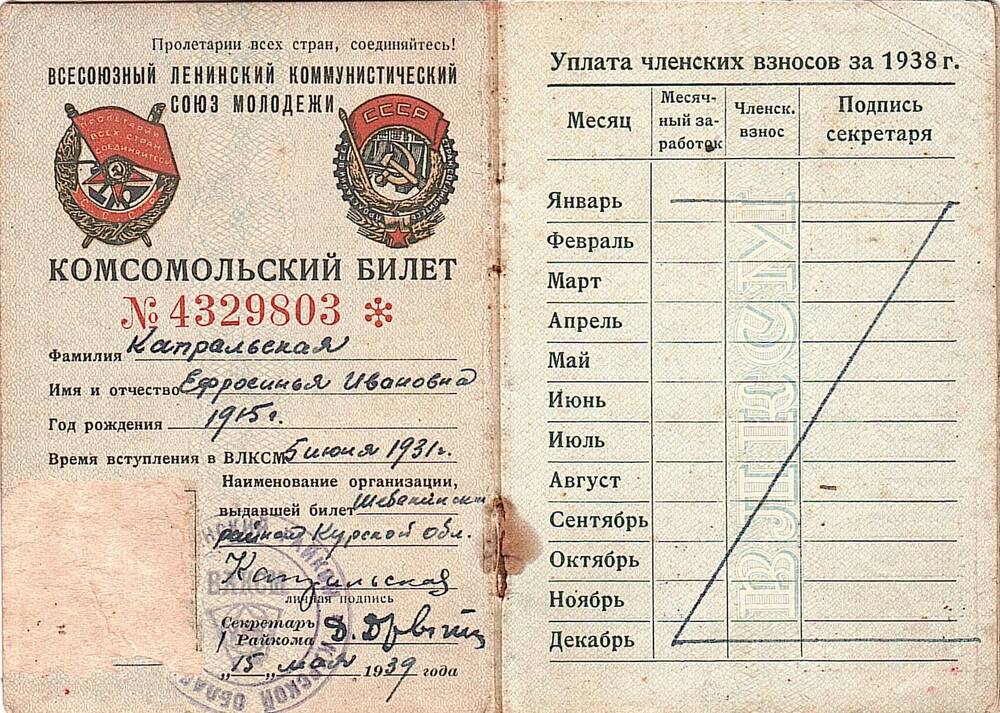 Пролетарии всех стран, соединяйтесь!
ВСЕСОЮЗНЫЙ ЛЕНИНСКИЙ КОММУНИСТИЧЕСКИЙ
СОЮЗ МОЛОДЕЖИ
ПРОЛЕТАРИИ
ВСЕХ СТРАН
СОЕДИНЯЙТЕСЬ
СССР
СССР
КОМСОМОЛЬСКИЙ БИЛЕТ
№ 4329803
Фамилия Капральская
Имя и отчество Ефросинья Ивановна
Год рождения 1915г.
Время вступления в ВЛКСМ 5 июня 1931г.
Наименование организации,
выдавшей билет
райком Курской обл.
Капральская
личная подпись
Секретарь
Райкома
„15„ мая 1939 года
ВЛКСМ
Уплата членских взносов за 1938 г.
Месяц Месяч-ный за-работок Членск. взнос Подпись секретаря
Январь
Февраль
Март
Апрель
Май
Июнь
Июль
Август
Сентябрь
Октябрь
Ноябрь
Декабрь
ВЛКСМ